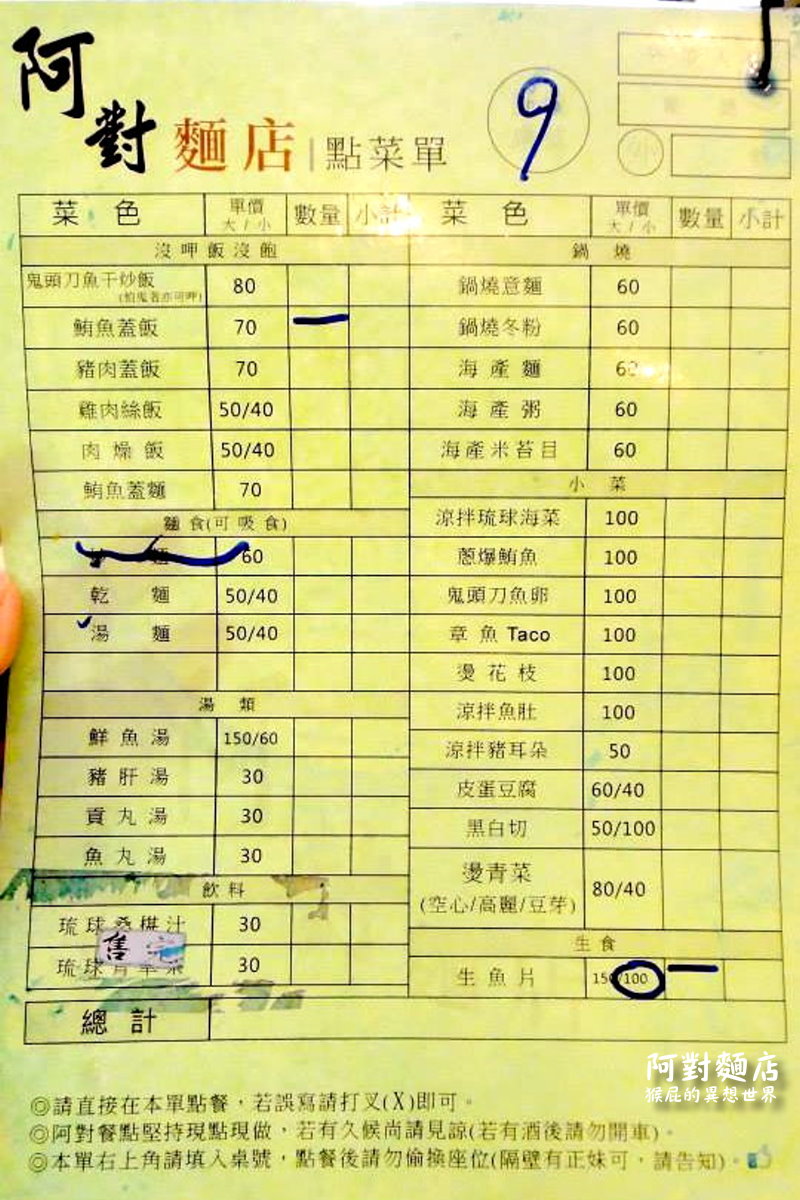 阿對麵店 | 點菜單
9
菜色 單價 大 / 小 數量 小計
沒呷飯沒飽
鬼頭刀魚干炒飯 80
(怕鬼者亦可呷)
鮪魚蓋飯 70 一
豬肉蓋飯 70
雞肉絲飯 50/40
肉燥飯 50/40
鮪魚蓋麵 70
麵食(可吸食)
麵 60
乾麵 50/40
湯麵 50/40
湯類
鮮魚湯 150/60
豬肝湯 30
貢丸湯 30
魚丸湯 30
飲料
琉球桑椹汁 30
售
琉球 30
菜色 單價 大 / 小 數量 小計
鍋燒
鍋燒意麵 60
鍋燒冬粉 60
海產麵 60
海產粥 60
海產米苔目 60
小菜
涼拌琉球海菜 100
蔥爆鮪魚 100
鬼頭刀魚卵 100
章魚 Taco 100
燙花枝 100
涼拌魚肚 100
涼拌豬耳朵 50
皮蛋豆腐 60/40
黑白切 50/100
燙青菜 80/40
(空心/高麗/豆芽)
生食
生魚片 150/100 一
總計
◎請直接在本單點餐，若誤寫請打叉(X)即可。
◎阿對餐點堅持現點現做，若有久候尚請見諒(若有酒後請勿開車)。
◎本單右上角請填入桌號，點餐後請勿偷換座位(隔壁有正妹可，請告知)。
阿對麵店
猴屁的異想世界